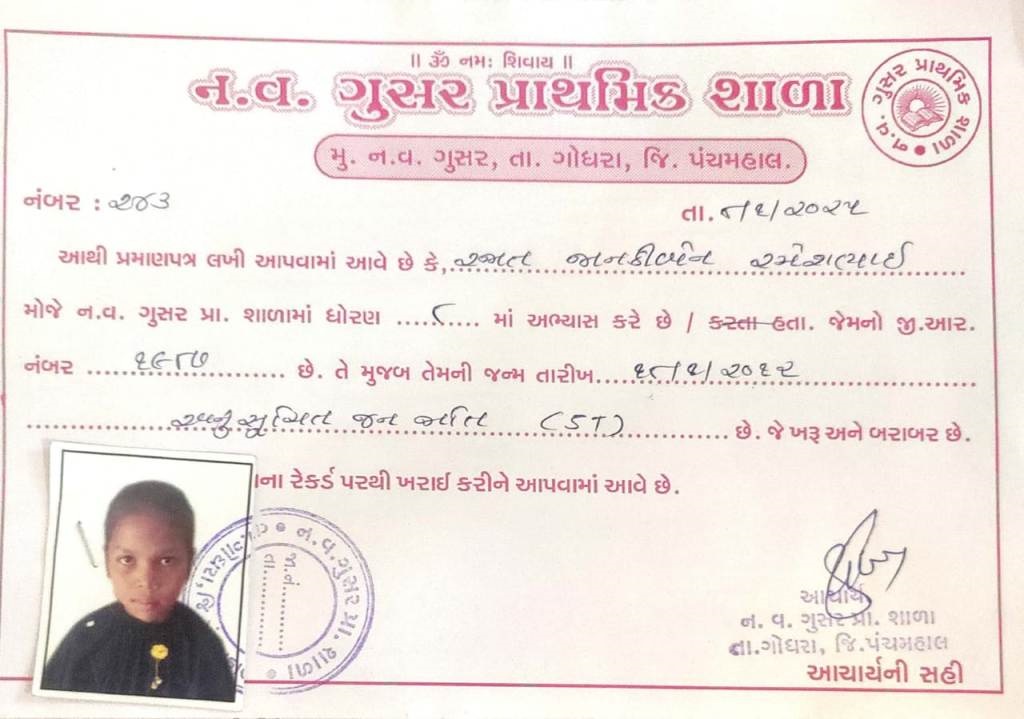 ॥ ૐ નમઃ શિવાય ॥
ન.વ. ગુસર પ્રાથમિક શાળા
ન.વ. ગુસર પ્રાથમિક શાળા
મુ. ન.વ. ગુસર, તા. ગોધરા, જિ. પંચમહાલ.
નંબર : ૨૪૩ તા. ૮/૧/૨૦૨૫
આથી પ્રમાણપત્ર લખી આપવામાં આવે છે કે, જાનકીબેન રમેશભાઈ
મોજે ન.વ. ગુસર પ્રા. શાળામાં ધોરણ ૮ માં અભ્યાસ કરે છે / કરતા હતા. જેમનો જી.આર.
નંબર ૧૯૮૭ છે. તે મુજબ તેમની જન્મ તારીખ ૧૮/૧/૨૦૧૨
અનુસૂચિત જન જાતિ (ST) છે. જે ખરૂ અને બરાબર છે.
ના રેકર્ડ પરથી ખરાઈ કરીને આપવામાં આવે છે.
ન.વ. ગુસર પ્રા. શાળા
જા.નં.
તા.
આચાર્ય
ન. વ. ગુસર પ્રા. શાળા
તા.ગોધરા, જિ.પંચમહાલ
આચાર્યની સહી